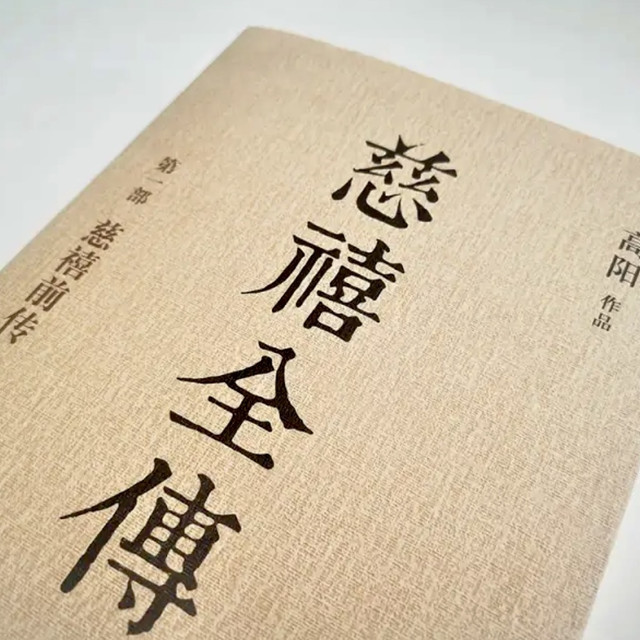 高阳 作品
慈禧全傳
第一部 慈禧前传